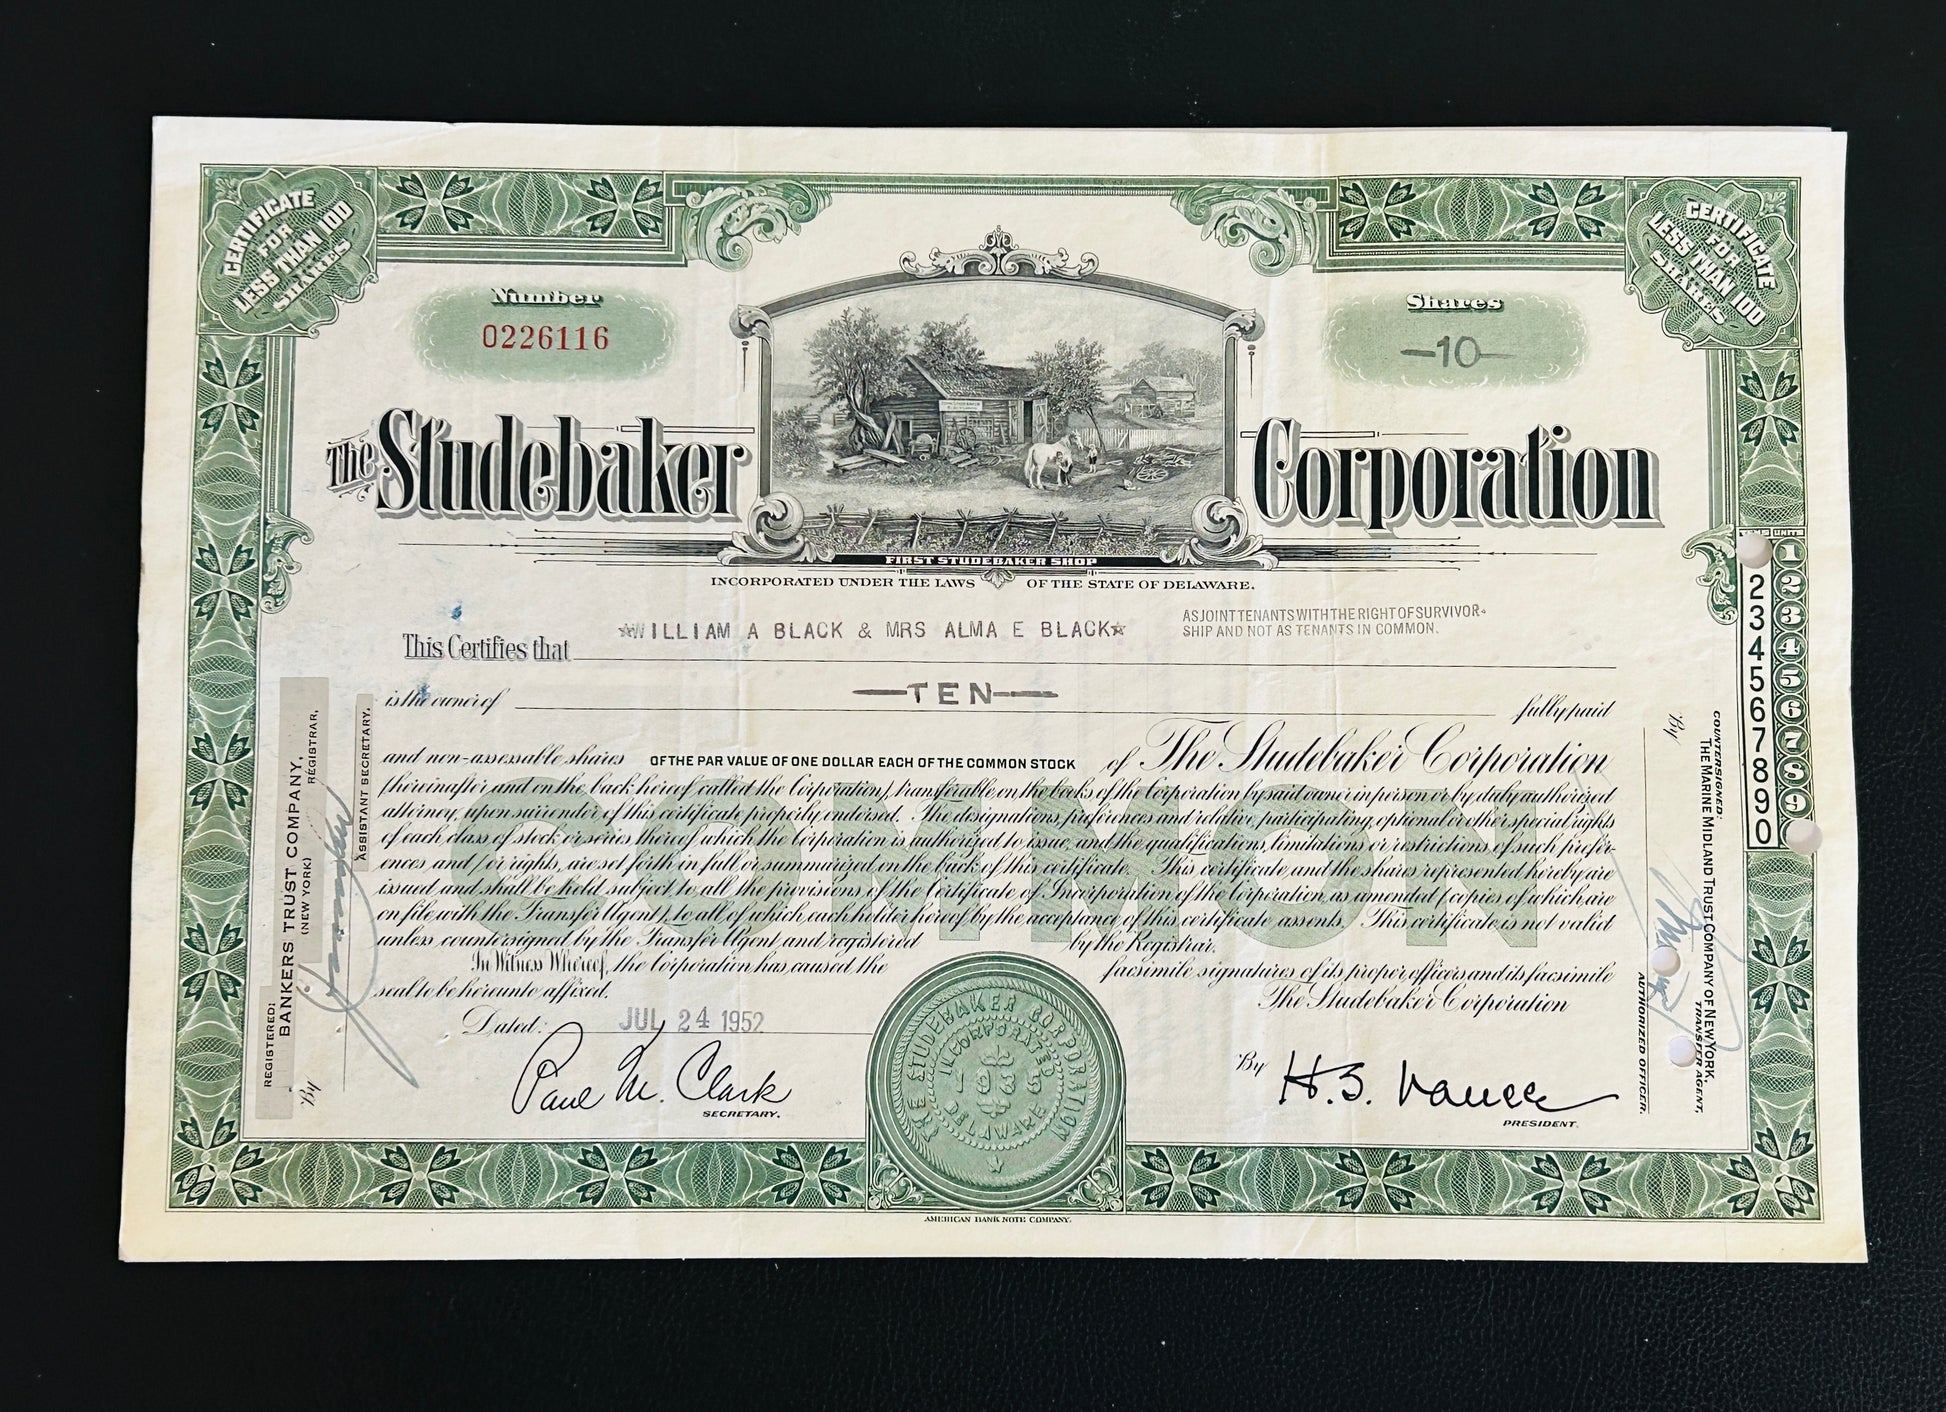 CERTIFICATE
FOR
LESS THAN 100
SHARES
CERTIFICATE
FOR
LESS THAN 100
SHARES
Number
0226116
Shares
—10—
The Studebaker Corporation
FIRST STUDEBAKER SHOP
INCORPORATED UNDER THE LAWS OF THE STATE OF DELAWARE.
This Certifies that ☆WILLIAM A BLACK & MRS ALMA E BLACK☆ AS JOINT TENANTS WITH THE RIGHT OF SURVIVOR-
SHIP AND NOT AS TENANTS IN COMMON.
is the owner of —TEN— fully paid
and non-assessable shares OF THE PAR VALUE OF ONE DOLLAR EACH OF THE COMMON STOCK of The Studebaker Corporation
(hereinafter and on the back hereof called the Corporation), transferable on the books of the Corporation by said owner in person or by duly authorized
attorney, upon surrender of this certificate properly endorsed. The designations, preferences and relative, participating, optional or other special rights
of each class of stock or series thereof which the Corporation is authorized to issue, and the qualifications, limitations or restrictions of such prefer-
ences and/or rights, are set forth in full or summarized on the back of this certificate. This certificate and the shares represented hereby are
issued and shall be held subject to all the provisions of the Certificate of Incorporation of the Corporation, as amended (copies of which are
on file with the Transfer Agent), to all of which each holder hereof by the acceptance of this certificate assents. This certificate is not valid
unless countersigned by the Transfer Agent and registered by the Registrar.
COMMON
In Witness Whereof, the Corporation has caused the facsimile signatures of its proper officers and its facsimile
seal to be hereunto affixed.
The Studebaker Corporation
Dated: JUL 24 1952
Paul M. Clark
SECRETARY.
By H.S. Vance
PRESIDENT.
THE STUDEBAKER CORPORATION
INCORPORATED
1935
DELAWARE
AMERICAN BANK NOTE COMPANY.
REGISTERED:
BANKERS TRUST COMPANY,
(NEW YORK) REGISTRAR,
By
ASSISTANT SECRETARY.
COUNTERSIGNED:
THE MARINE MIDLAND TRUST COMPANY OF NEW YORK
TRANSFER AGENT,
By
AUTHORIZED OFFICER.
TENS UNITS
1
2 2
3 3
4 4
5 5
6 6
7 7
8 8
9 9
0